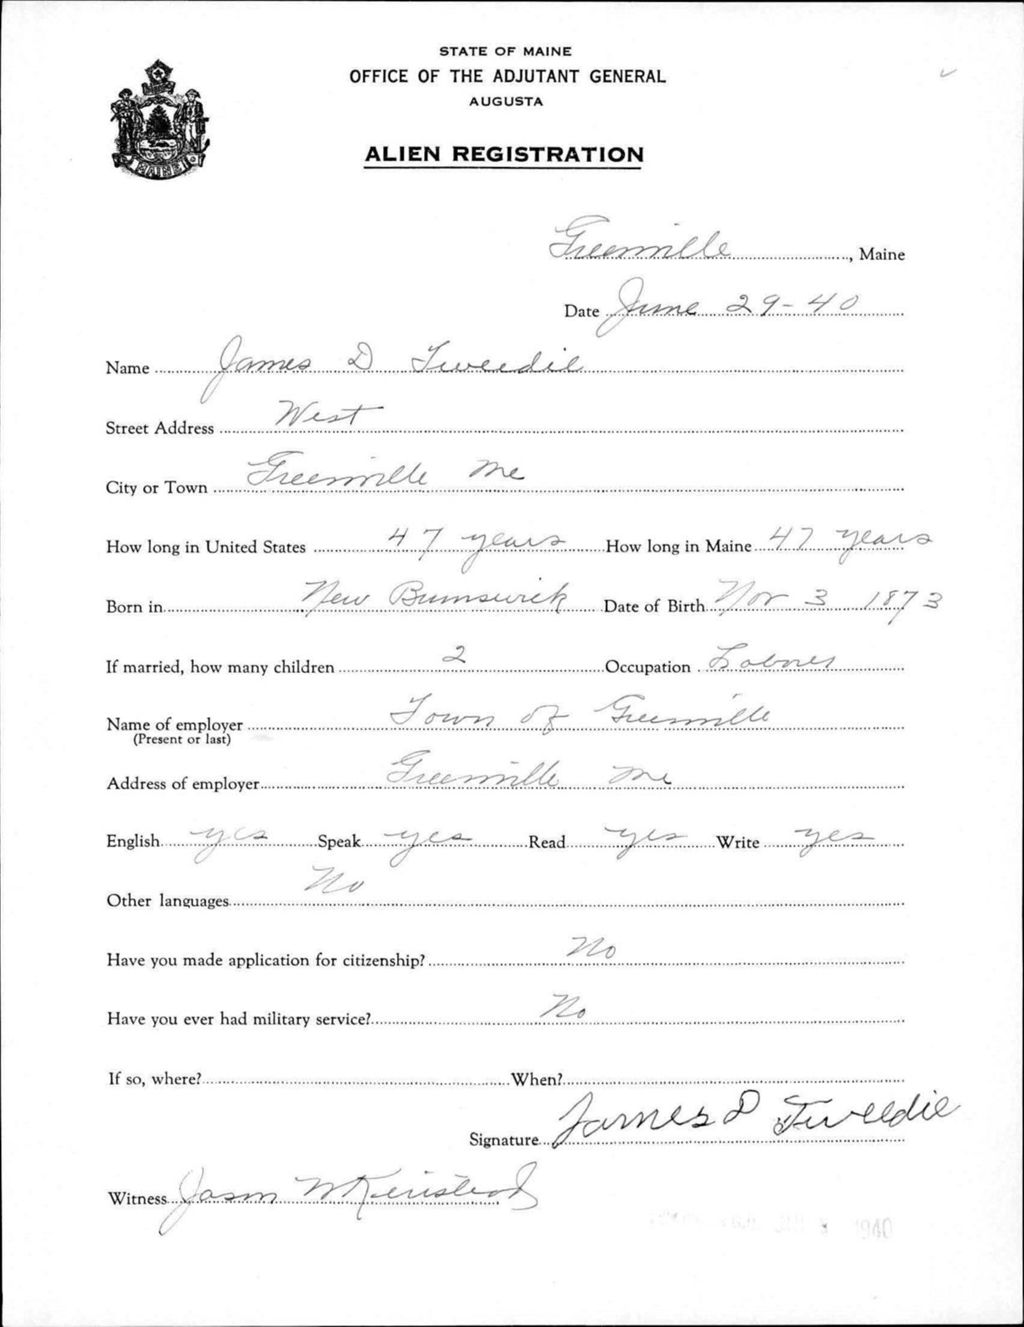 STATE OF MAINE
OFFICE OF THE ADJUTANT GENERAL
AUGUSTA
ALIEN REGISTRATION
MAINE
Greenville, Maine
Date June 29-40
Name James D Tweedie
Street Address West
City or Town Greenville Me
How long in United States 47 years How long in Maine 47 years
Born in New Brunswick Date of Birth Nov 3 1873
If married, how many children 2 Occupation Laborer
Name of employer Town of Greenville
(Present or last)
Address of employer Greenville Me
English yes Speak yes Read yes Write yes
Other languages No
Have you made application for citizenship? No
Have you ever had military service? No
If so, where? When?
Signature James D Tweedie
Witness Jason W
1940